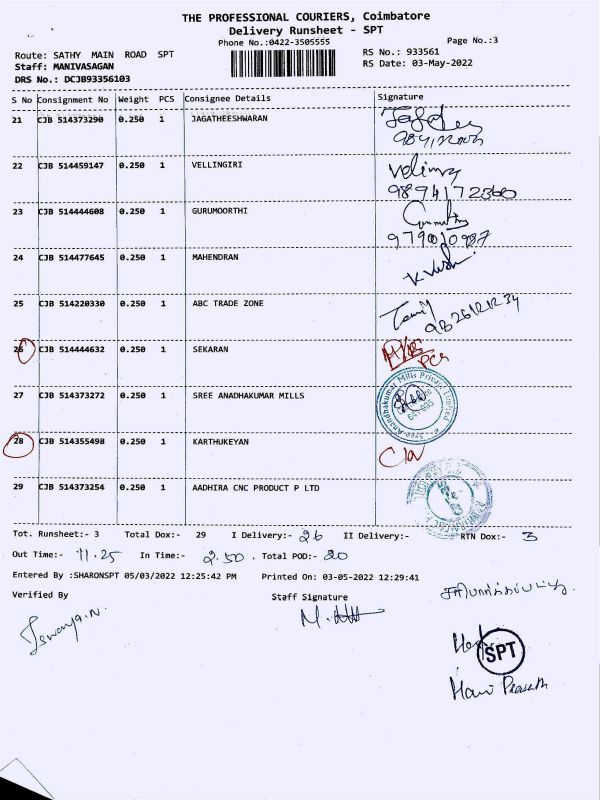 THE PROFESSIONAL COURIERS, Coimbatore
Delivery Runsheet - SPT
Phone No.:0422-3505555
Page No.:3
Route: SATHY MAIN ROAD SPT
RS No.: 933561
Staff: MANIVASAGAN
RS Date: 03-May-2022
DRS No.: DCJB93356103
S No Consignment No Weight PCS Consignee Details Signature
21 CJB 514373290 0.250 1 JAGATHEESHWARAN
22 CJB 514459147 0.250 1 VELLINGIRI
23 CJB 514444608 0.250 1 GURUMOORTHI
9790010987
24 CJB 514477645 0.250 1 MAHENDRAN
25 CJB 514220330 0.250 1 ABC TRADE ZONE
26 CJB 514444632 0.250 1 SEKARAN
27 CJB 514373272 0.250 1 SREE ANADHAKUMAR MILLS
28 CJB 514355498 0.250 1 KARTHUKEYAN
29 CJB 514373254 0.250 1 AADHIRA CNC PRODUCT P LTD
Tot. Runsheet:- 3 Total Dox:- 29 I Delivery:- 26 II Delivery:- RTN Dox:- 3
Out Time:- 11.25 In Time:- 2.50 . Total POD:- 20
Entered By :SHARONSPT 05/03/2022 12:25:42 PM Printed On: 03-05-2022 12:29:41
Verified By
Staff Signature
Iswarya.N.
SPT